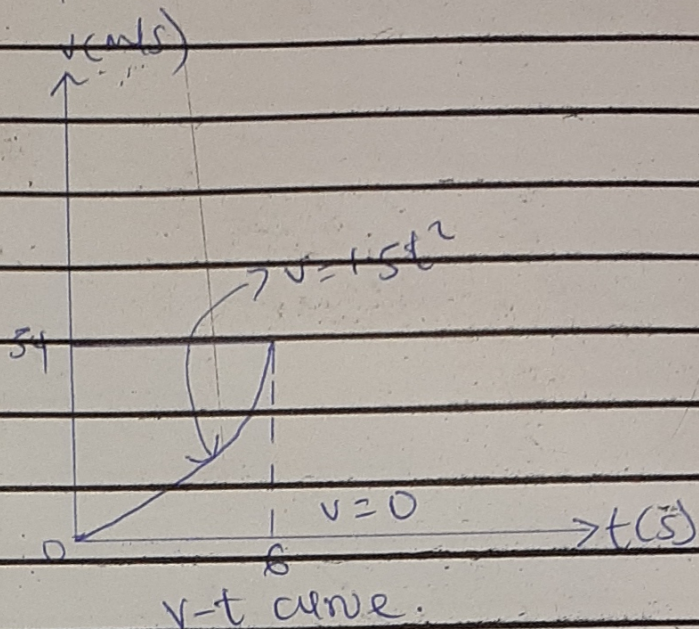 v(m/s)
v=1.5t²
54
v=0
t(s)
0
6
v-t curve.